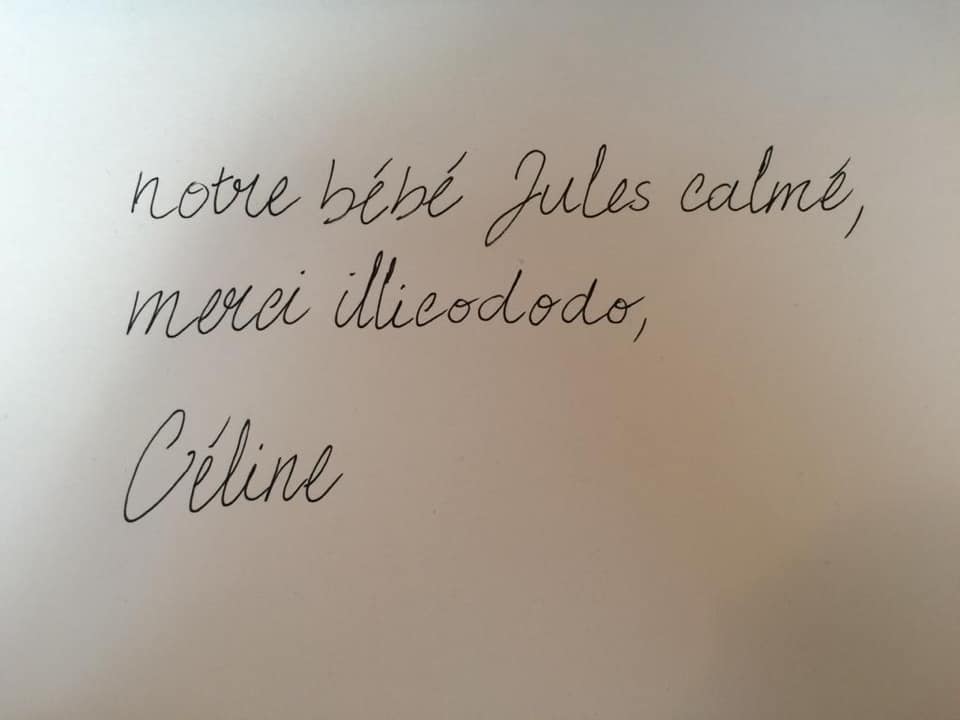 notre bébé Jules calmé,
merci illicododo,
Céline